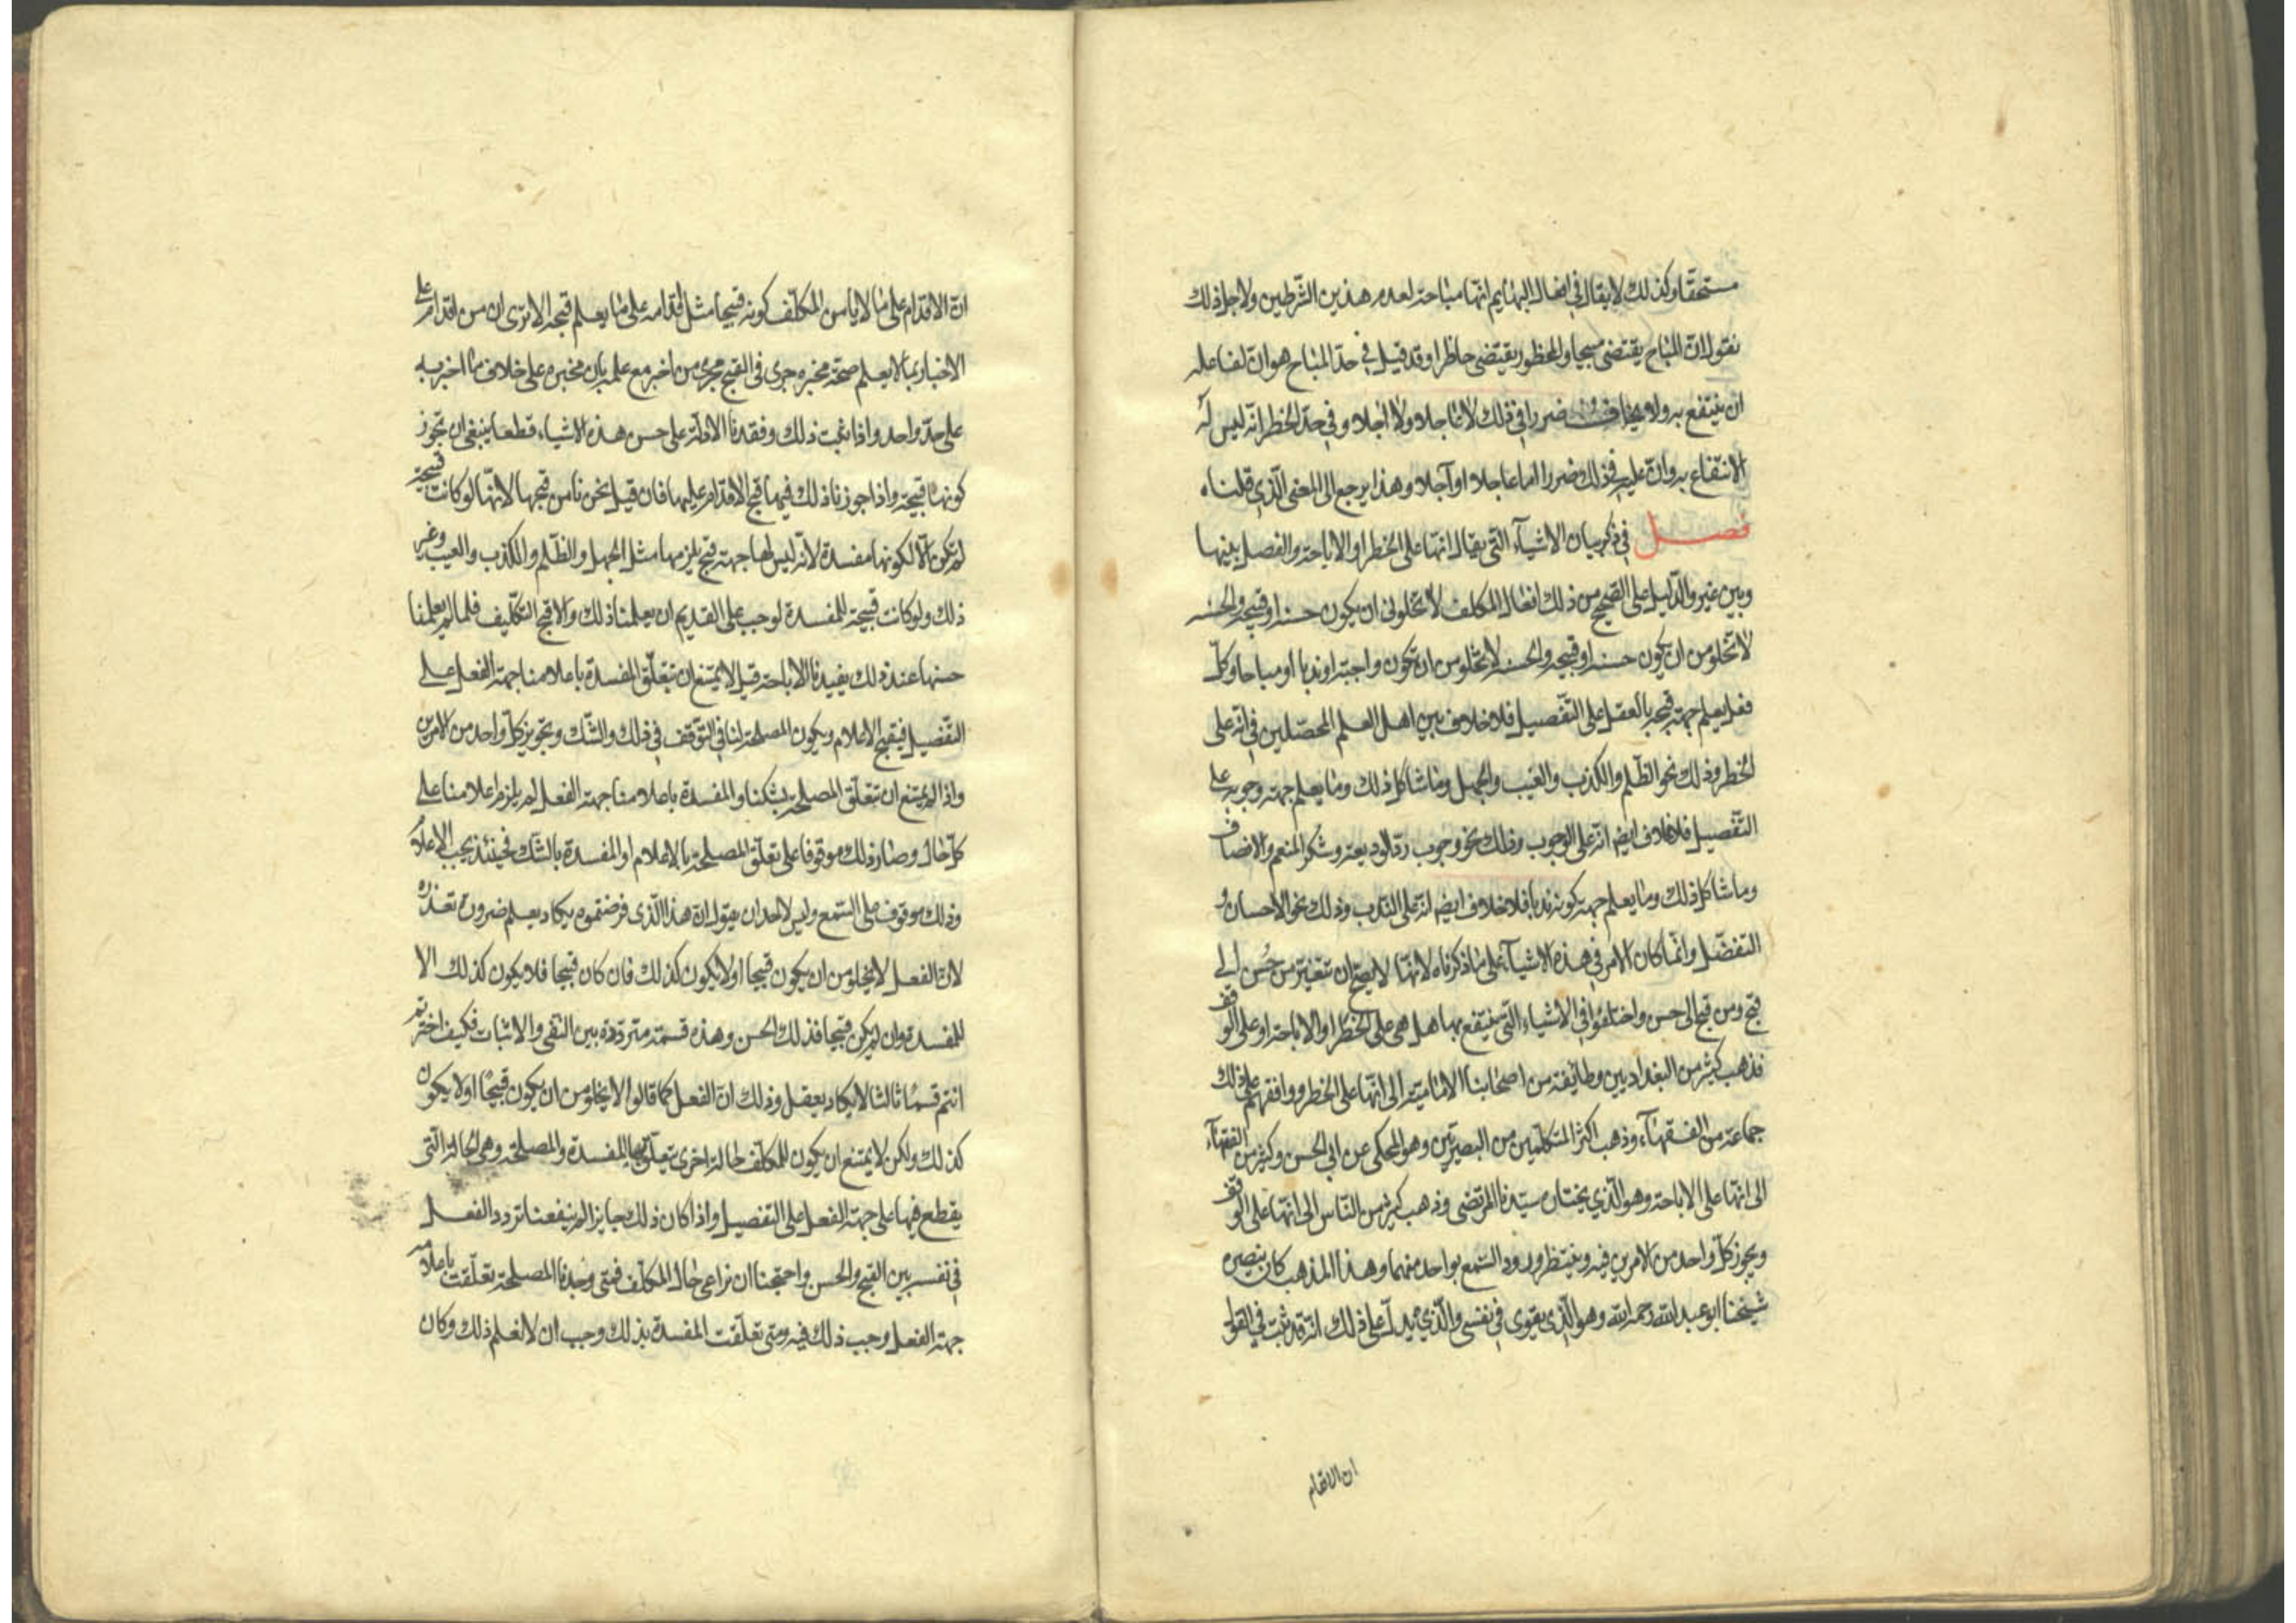 مستحقا وكذلك لا يقال في افعال البهايم انها مباحة لعدم هذين الشرطين ولاجل ذلك
نقول ان المباح يقتضى مبيحا والمحظور يقتضى حاظرا وقد قيل في حد المباح هو ان لفاعله
ان ينتفع به ولا يخاف ضررا في ذلك لا عاجلا ولا اجلا وفي حد الحظر انه ليس له
الانتفاع به وان عليه في ذلك ضررا اما عاجلا او آجلا وهذا يرجع الى المعنى الذي قلناه
فصل في ذكر بيان الاشيآء التي يقال انها على الحظر او الاباحة والفصل بينها
وبين غيره والدليل على الصحيح من ذلك افعال المكلف لا تخلو في ان يكون حسنه او قبيحه والحسنه
لا تخلو من ان تكون حسنه او قبيحه والحسنه لا تخلو من ان تكون واجبة او ندبا او مباحا وكل
فعل يعلم جهة قبحه بالعقل على التفصيل فلا خلاف بين اهل العلم المحصلين في انه على
الحظر وذلك نحو الظلم والكذب والعيب والجهل وما شاكل ذلك وما يعلم جهة وجوبه على
التفصيل فلا خلاف ايضا انه على الوجوب وذلك نحو وجوب رد الوديعة وشكر المنعم والانصاف
وما شاكل ذلك وما يعلم جهة كونه ندبا فلا خلاف ايضا انه على الندب وذلك نحو الاحسان و
التفضل وانما كان الامر في هذه الاشيآء على ما ذكرناه لانها لا يصح ان تتغير من حُسن الى
قبح ومن قبح الى حسن واختلفوا في الاشياء التي ينتفع بها هل هي على الحظر او الاباحة او على الوقف
فذهب كثير من البغداديين وطايفة من اصحابنا الامامية الى انها على الحظر ووافقهم على ذلك
جماعة من الفقهآء وذهب اكثر المتكلمين من البصريين وهو المحكى عن ابي الحسن وكثير من الفقهآء
الى انها على الاباحة وهو الذي يختاره سيدنا المرتضى وذهب كثير من الناس الى انها على الوقف
ويجوز كل واحد من الامرين فيه وينتظر ورود السمع بواحد منهما وهذا المذهب كان ينصره
شيخنا ابو عبد الله رحمه الله وهو الذي يقوى في نفسى والذي يدل على ذلك انه قد ثبت في العقول
ان الاقدام
ان الاقدام على ما لا يامن المكلف كونه قبيحا مثل اقدامه على ما يعلم قبحه الا ترى ان من اقدم على
الاخبار بما لا يعلم صحة مخبره جرى في القبح مجرى من اخبر مع علمه بان مخبره على خلاف ما اخبر به
على حد واحد واذا ثبت ذلك وفقدنا الادلة على حسن هذه الاشياء قطعا ينبغى ان تجوز
كونها قبيحة واذا جوزنا ذلك فيها قبح الاقدام عليها فان قيل نحن نامن قبحها لانها لو كانت قبيحة
لم تكن الا لكونها مفسدة لانه ليس لها جهة قبح يلزمها مثل الجهل والظلم والكذب والعيب وغير
ذلك ولو كانت قبيحة للمفسدة لوجب على القديم ان يعلمنا ذلك والا قبح التكليف فلما لم يعلمنا
حسنها عند ذلك يفيدنا الاباحة قيل لا يمتنع ان تتعلق المفسدة باعلامنا جهة الفعل على
التفصيل فيقبح الاعلام ويكون المصلحة لنا في التوقف في ذلك والشك وتجويز كل واحد من الامرين
واذا لم يمتنع ان تتعلق المصلحة بشكنا والمفسدة باعلامنا جهة الفعل لم يلزم اعلامنا على
كل حال وصار ذلك موقوفا على تعلق المصلحة بالاعلام او المفسدة بالشك فحينئذ يجب الاعلام
وذلك موقوف على السمع وليس لاحد ان يقول ان هذا الذى فرضتموه يكاد يعلم ضرورة تعذره
لان الفعل لا يخلو من ان يكون قبيحا او لا يكون كذلك فان كان قبيحا فلا يكون كذلك الا
للمفسدة وان لم يكن قبيحا فذلك الحسن وهذه قسمة مترددة بين النفى والاثبات فكيف اخترتم
انتم قسمًا ثالثا لا يكاد يعقل وذلك ان الفعل كما قالوا لا يخلو من ان يكون قبيحًا او لا يكون
كذلك ولكن لا يمتنع ان يكون للمكلف حالة اخرى تتعلق بها المفسدة والمصلحة وهى الحالة التى
يقطع فيها على جهة الفعل على التفصيل واذا كان ذلك جايزا لم ينفعنا تردد الفعل
في نفسه بين القبح والحسن واحتجنا ان نراعى حال المكلف فمتى وجدنا المصلحة تعلقت باعلامه
جهة الفعل وجب ذلك فيه ومتى تعلقت المفسدة بذلك وجب ان لا نعلم ذلك وكان